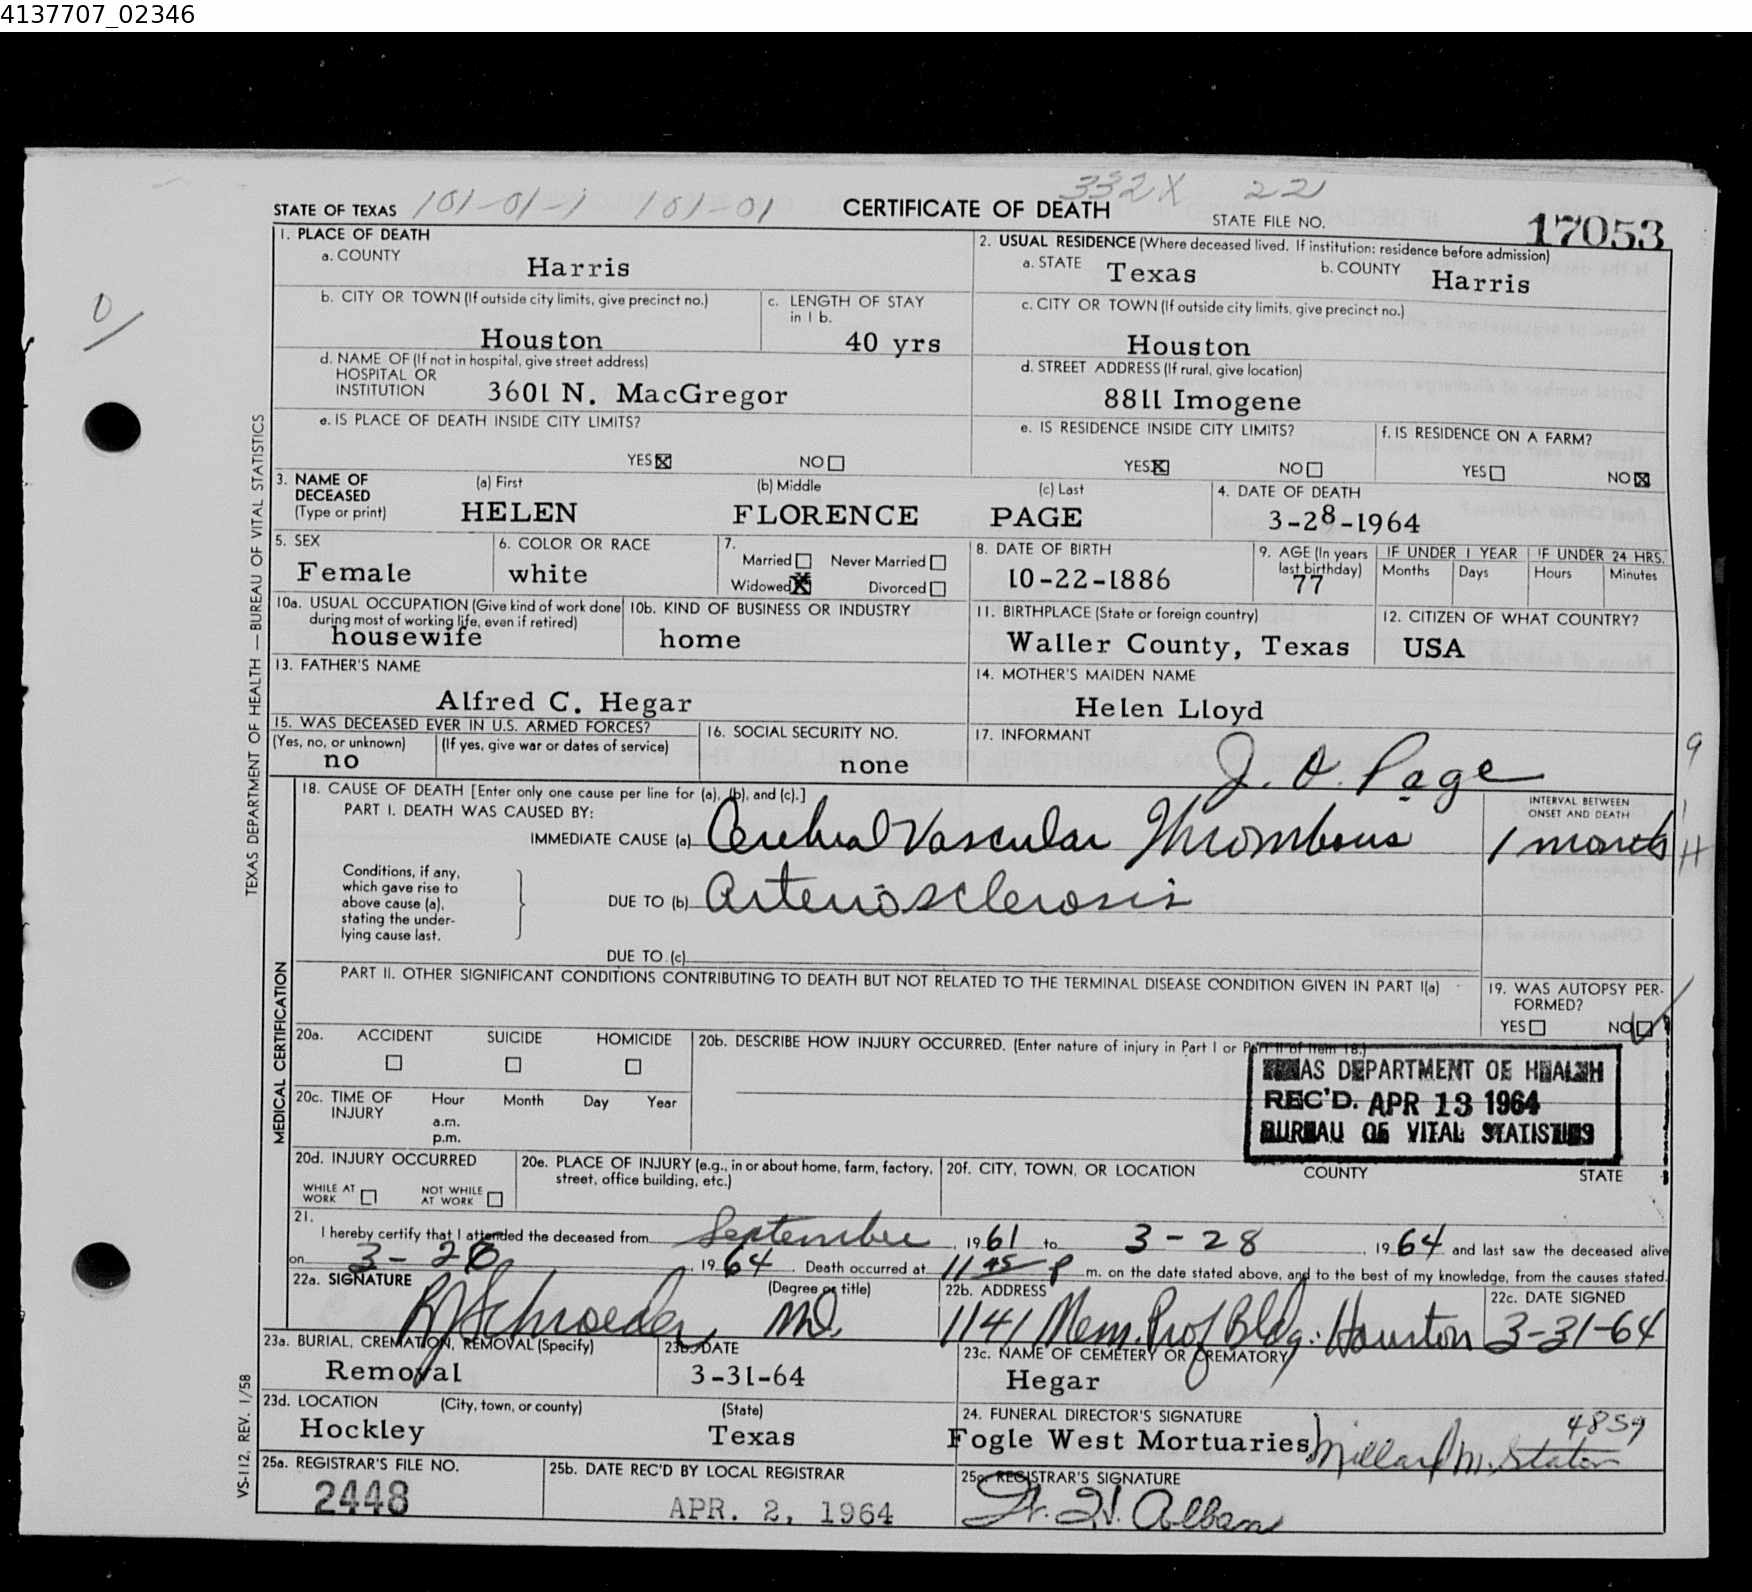 4137707_02346
101-01-1 101-01 332X 221
STATE OF TEXAS CERTIFICATE OF DEATH STATE FILE NO. 17053
1. PLACE OF DEATH
a. COUNTY Harris
2. USUAL RESIDENCE (Where deceased lived. If institution: residence before admission)
a. STATE Texas b. COUNTY Harris
b. CITY OR TOWN (If outside city limits, give precinct no.)
Houston
c. LENGTH OF STAY
in 1 b.
40 yrs
c. CITY OR TOWN (If outside city limits, give precinct no.)
Houston
d. NAME OF (If not in hospital, give street address)
HOSPITAL OR
INSTITUTION 3601 N. MacGregor
d. STREET ADDRESS (If rural, give location)
8811 Imogene
e. IS PLACE OF DEATH INSIDE CITY LIMITS?
YES NO
e. IS RESIDENCE INSIDE CITY LIMITS?
YES NO
f. IS RESIDENCE ON A FARM?
YES NO
3. NAME OF
DECEASED
(Type or print)
(a) First (b) Middle (c) Last
HELEN FLORENCE PAGE
4. DATE OF DEATH
3-28-1964
5. SEX
Female
6. COLOR OR RACE
white
7.
Married Never Married
Widowed Divorced
8. DATE OF BIRTH
10-22-1886
9. AGE (In years
last birthday)
77
IF UNDER 1 YEAR
Months Days
IF UNDER 24 HRS.
Hours Minutes
10a. USUAL OCCUPATION (Give kind of work done
during most of working life, even if retired)
housewife
10b. KIND OF BUSINESS OR INDUSTRY
home
11. BIRTHPLACE (State or foreign country)
Waller County, Texas
12. CITIZEN OF WHAT COUNTRY?
USA
13. FATHER'S NAME
Alfred C. Hegar
14. MOTHER'S MAIDEN NAME
Helen Lloyd
15. WAS DECEASED EVER IN U.S. ARMED FORCES?
(Yes, no, or unknown) (If yes, give war or dates of service)
no
16. SOCIAL SECURITY NO.
none
17. INFORMANT
J. O. Page
18. CAUSE OF DEATH [Enter only one cause per line for (a), (b), and (c).]
PART I. DEATH WAS CAUSED BY:
IMMEDIATE CAUSE (a) Cerebral Vascular Thrombosis
INTERVAL BETWEEN
ONSET AND DEATH
1 month
Conditions, if any,
which gave rise to
above cause (a),
stating the under-
lying cause last.
DUE TO (b) Arteriosclerosis
DUE TO (c)
PART II. OTHER SIGNIFICANT CONDITIONS CONTRIBUTING TO DEATH BUT NOT RELATED TO THE TERMINAL DISEASE CONDITION GIVEN IN PART I(a)
19. WAS AUTOPSY PER-
FORMED?
YES NO
20a. ACCIDENT SUICIDE HOMICIDE
20b. DESCRIBE HOW INJURY OCCURRED. (Enter nature of injury in Part I or Part II of item 18.)
TEXAS DEPARTMENT OF HEALTH
REC'D. APR 13 1964
BUREAU OF VITAL STATISTICS
20c. TIME OF
INJURY
Hour Month Day Year
a.m.
p.m.
20d. INJURY OCCURRED
WHILE AT
WORK
NOT WHILE
AT WORK
20e. PLACE OF INJURY (e.g., in or about home, farm, factory,
street, office building, etc.)
20f. CITY, TOWN, OR LOCATION COUNTY STATE
21.
I hereby certify that I attended the deceased from September, 1961 to 3-28, 1964 and last saw the deceased alive
on 3-28, 1964. Death occurred at 11 45 P m. on the date stated above, and to the best of my knowledge, from the causes stated.
22a. SIGNATURE (Degree or title)
R J Schroeder MD.
22b. ADDRESS
1141 Mem. Prof Bldg. Houston
22c. DATE SIGNED
3-31-64
23a. BURIAL, CREMATION, REMOVAL (Specify)
Removal
23b. DATE
3-31-64
23c. NAME OF CEMETERY OR CREMATORY
Hegar
23d. LOCATION (City, town, or county) (State)
Hockley Texas
24. FUNERAL DIRECTOR'S SIGNATURE 4859
Fogle West Mortuaries Millard M. Staton
25a. REGISTRAR'S FILE NO.
2448
25b. DATE REC'D BY LOCAL REGISTRAR
APR. 2, 1964
25c. REGISTRAR'S SIGNATURE
TEXAS DEPARTMENT OF HEALTH — BUREAU OF VITAL STATISTICS
MEDICAL CERTIFICATION
VS-112, REV. 1/58